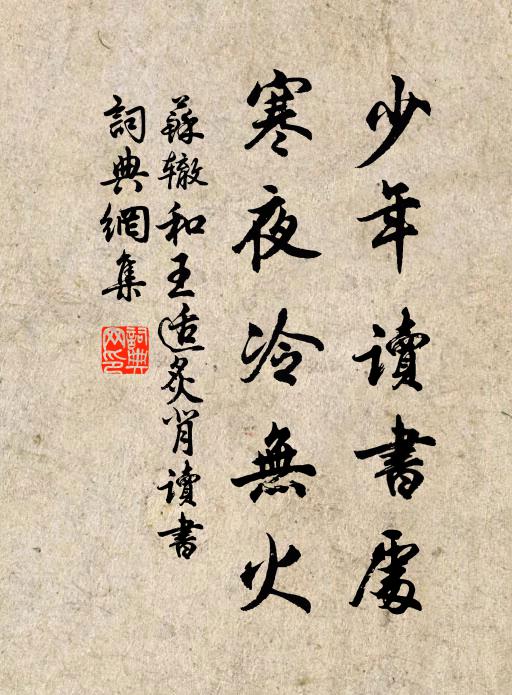 少年讀書處
寒夜冷無火
蘇辙和王适炙背讀書
詞典網集
詞典网印